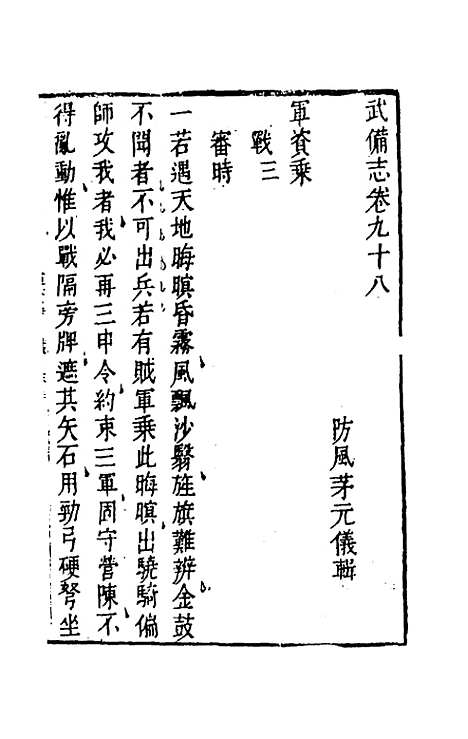 武備志卷九十八
防風茅元儀輯
軍資乘
戰三
審時
一若遇天地晦暝昏霧風飄沙翳旌旗難辨金鼓
不聞者不可出兵若有賊軍乘此晦暝出驍騎偏
師攻我者我必再三申令約束三軍固守營陳不
得亂動惟以戰隔旁牌遮其矢石用勁弓硬弩坐